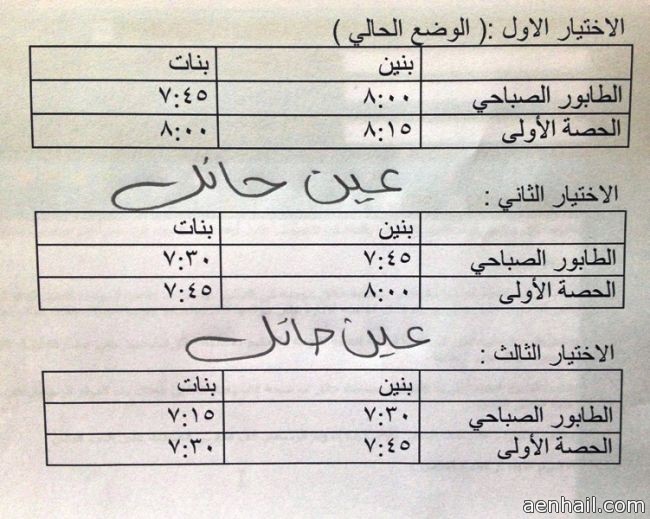 الاختيار الاول :( الوضع الحالي )
بنين بنات
الطابور الصباحي ٨:٠٠ ٧:٤٥
الحصة الأولى ٨:١٥ ٨:٠٠
عين حائل
الاختيار الثاني :
بنين بنات
الطابور الصباحي ٧:٤٥ ٧:٣٠
الحصة الأولى ٨:٠٠ ٧:٤٥
عين حائل
الاختيار الثالث :
بنين بنات
الطابور الصباحي ٧:٣٠ ٧:١٥
الحصة الأولى ٧:٤٥ ٧:٣٠
aenhail.com